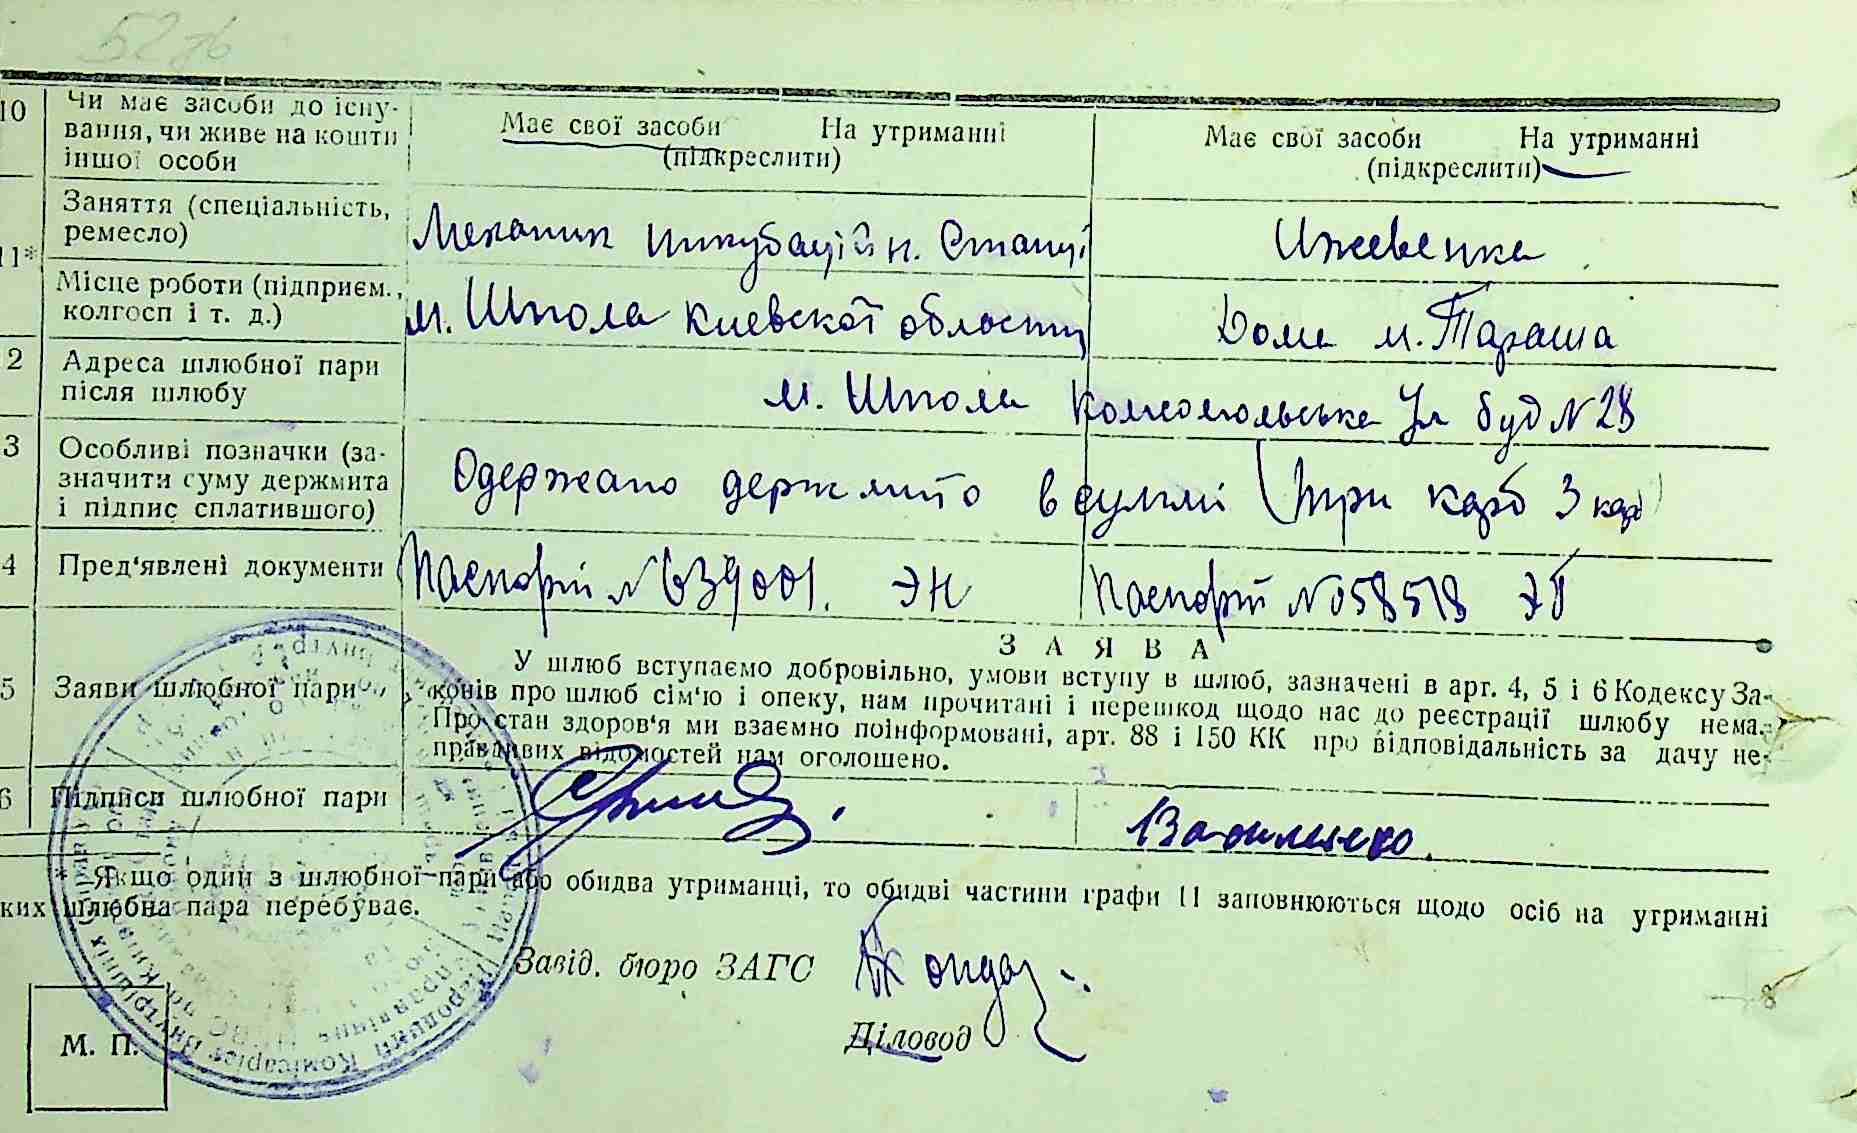 10 Чи має засоби до існу-
вання, чи живе на кошти
іншої особи
Має свої засоби На утриманні
(підкреслити)
Має свої засоби На утриманні
(підкреслити)
11* Заняття (спеціальність,
ремесло)
Механик інкубаційн. Станції
Ижевенка
Місце роботи (підприєм.,
колгосп і т. д.)
м. Шпола Киевскої области
Дома м. Тараща
2 Адреса шлюбної пари
після шлюбу
м. Шпола Комсомольська Ул буд N 28
3 Особливі позначки (за-
значити суму держмита
і підпис сплатившого)
Одержано держмито в суммі (три карб 3 кар)
4 Пред'явлені документи
Паспорт N 639001. ЭН
Паспорт N 058518
З А Я В А
5 Заяви шлюбної пари
У шлюб вступаємо добровільно, умови вступу в шлюб, зазначені в арт. 4, 5 і 6 Кодексу За-
конів про шлюб сім'ю і опеку, нам прочитані і перешкод щодо нас до реєстрації шлюбу нема.
Про стан здоров'я ми взаємно поінформовані, арт. 88 і 150 КК про відповідальність за дачу не-
правдивих відомостей нам оголошено.
6 Підписи шлюбної пари
Василенко.
* Якщо один з шлюбної пари або обидва утриманці, то обидві частини графи 11 заповнюються щодо осіб на утриманні
ких шлюбна пара перебуває.
Завід. бюро ЗАГС
Діловод
М. П.